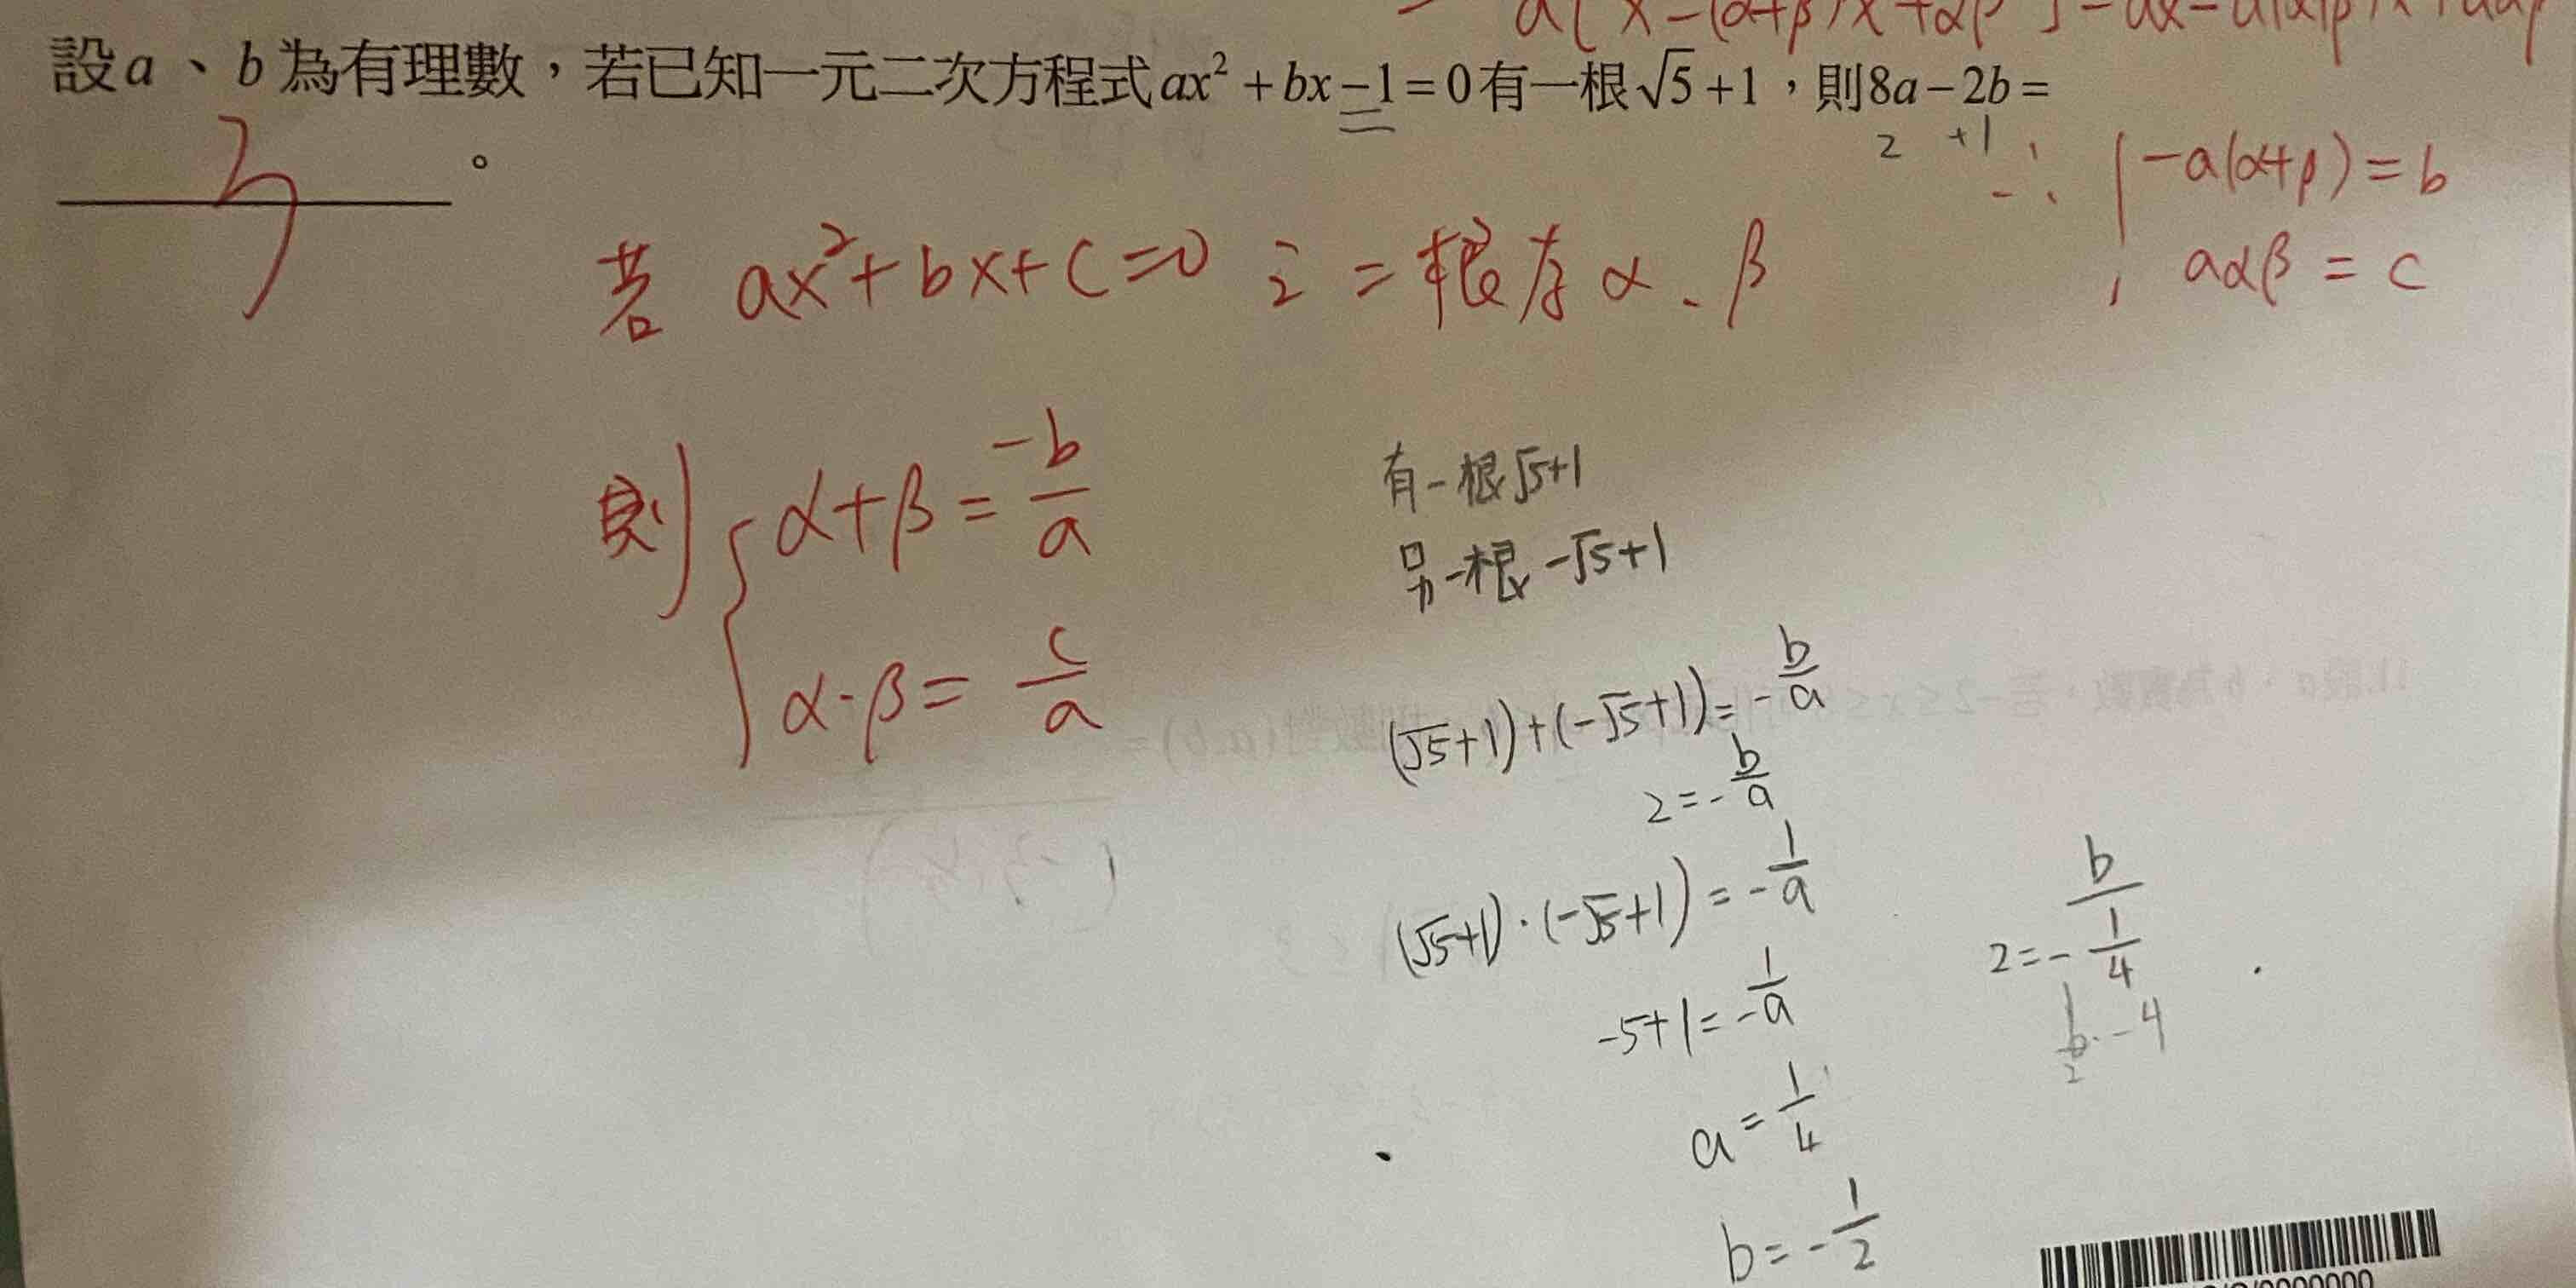 = a[x-(α+β)x+αβ]=ax-a(α+β)x+aαβ
設a、b為有理數，若已知一元二次方程式ax²+bx-1=0有一根√5+1，則8a-2b=
3。
2 +1
∴ { -a(α+β)=b
aαβ=c
若 ax²+bx+c=0 之二根為 α、β
則 { α+β=-b/a
α·β=c/a
有一根√5+1
另一根-√5+1
(√5+1)+(-√5+1)=-b/a
2=-b/a
(√5+1)·(-√5+1)=-1/a
-5+1=-1/a
a=1/4
b=-1/2
2=-b/(1/4)